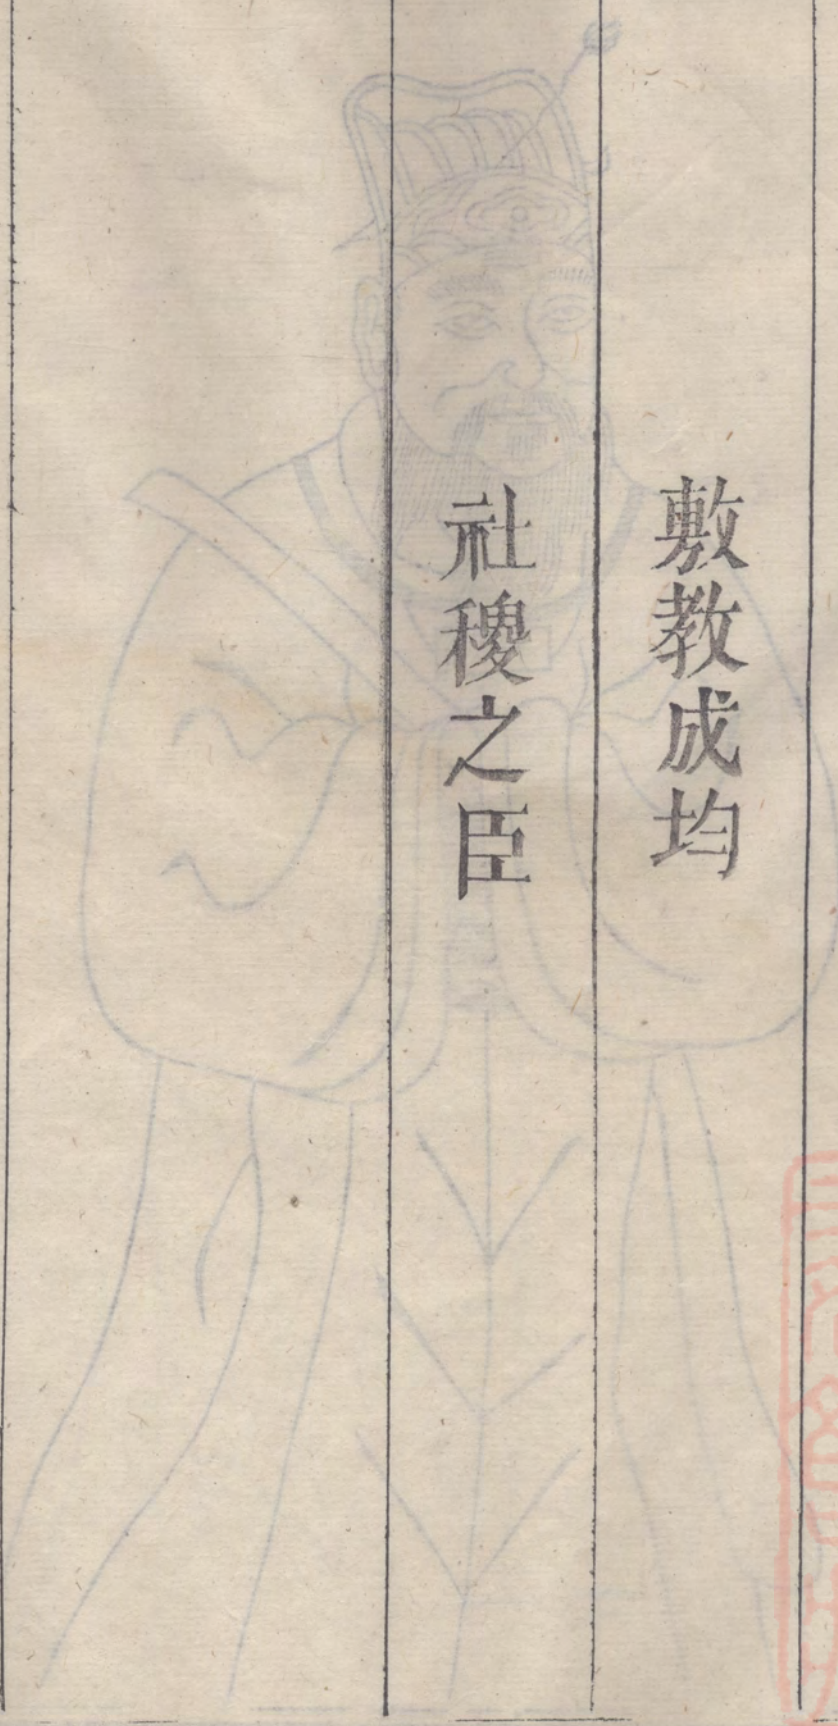 敷教成均
社稷之臣